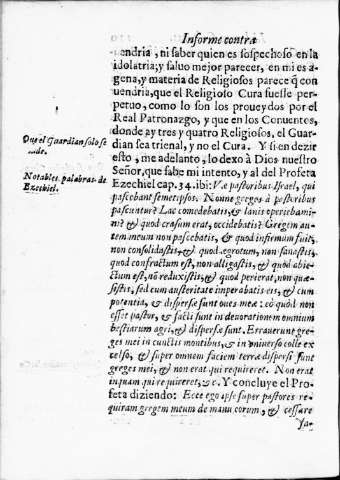 Informe contra
uendria, ni saber quien es sospechoso en la
idolatria; y saluo mejor parecer, en mi es a-
gena, y materia de Religiosos parece q̃ con
uendria, que el Religioso Cura fuesse per-
petuo, como lo son los proueydos por el
Real Patronazgo, y que en los Conuentos,
donde ay tres y quatro Religiosos, el Guar-
Que el Guardian solo se
dian sea trienal, y no el Cura. Y si en dezir
esto, me adelanto, lo dexo à Dios nuestro
Señor, que sabe mi intento, y al del Profeta
Notables palabras de
Ezechiel.
Ezechiel cap. 34. ibi: Væ pastoribus Israel, qui
pascebant semetipsos. Nonne greges à pastoribus
pascuntur? Lac comedebatis, & lanis operiebami-
ni? & quod crasum erat, occidebatis? Gregem au-
tem meum non pascebatis, & quod infirmum fuit,
non consolidastis, & quod ægrotum, non sanastis,
quod confractum est, non alligastis, & quod abie-
ctum est, nõ reduxistis, & quod perierat, non quæ-
sistis, sed cum austeritate imperabatis eis, & cum
potentia, & dispersæ sunt oues meæ: eò quòd non
esset pastor, & facti sunt in deuorationem omnium
bestiarum agri, & dispersæ sunt. Errauerunt gre-
ges mei in cunctis montibus, & in vniuerso colle ex
celso, & super omnem faciem terræ dispersi sunt
greges mei, & non erat qui requireret. Non erat
inquam qui requireret, &c. Y concluye el Pro-
feta diziendo: Ecce ego ipse super pastores re-
quiram gregem meum de manu eorum, & cessare
fa-